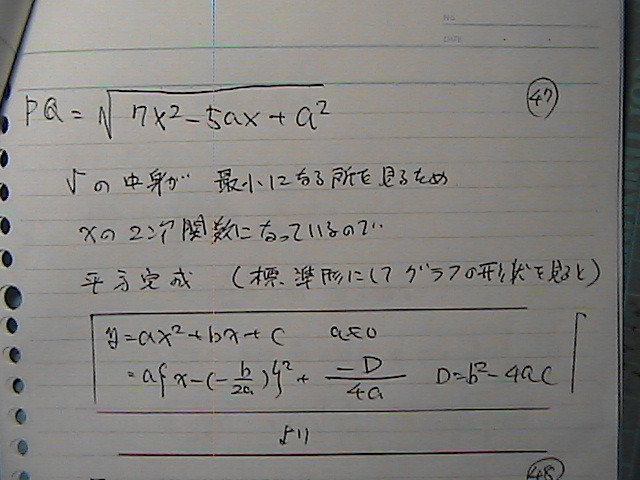 NO.
DATE
㊼
PQ = √7x²-5ax+a²
√の中身が 最小になる所を見るため
xの2次関数になっているので
平方完成 (標準形にしてグラフの形状を見ると)
y=ax²+bx+c a≠0
=a{x-(-b/2a)}²+ -D/4a D=b²-4ac
より
㊽